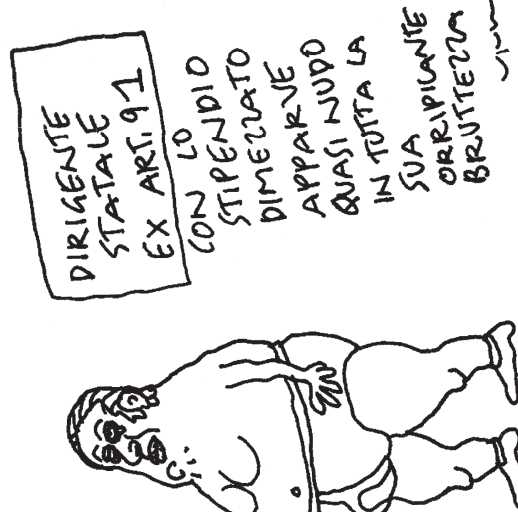 DIRIGENTE
STATALE
EX ART. 91
CON LO
STIPENDIO
DIMEZZATO
APPARVE
QUASI NUDO
IN TUTTA LA
SUA
ORRIPILANTE
BRUTTEZZA